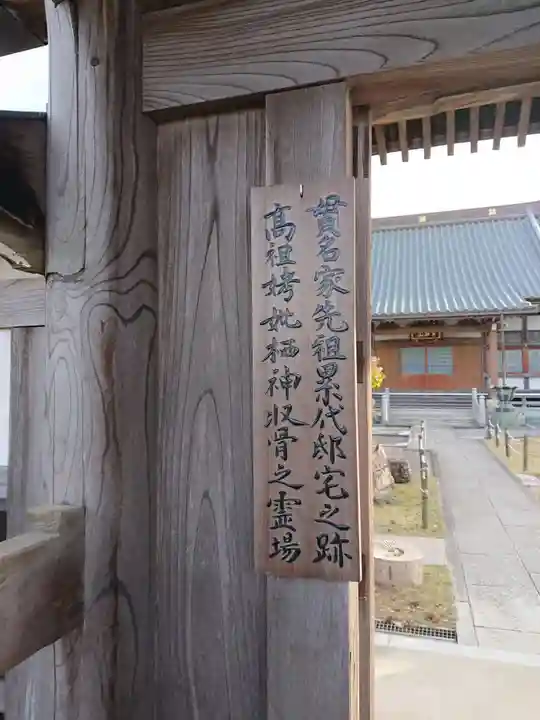 貫名家先祖累代邸宅之跡
高祖妣妣栖神収骨之霊場